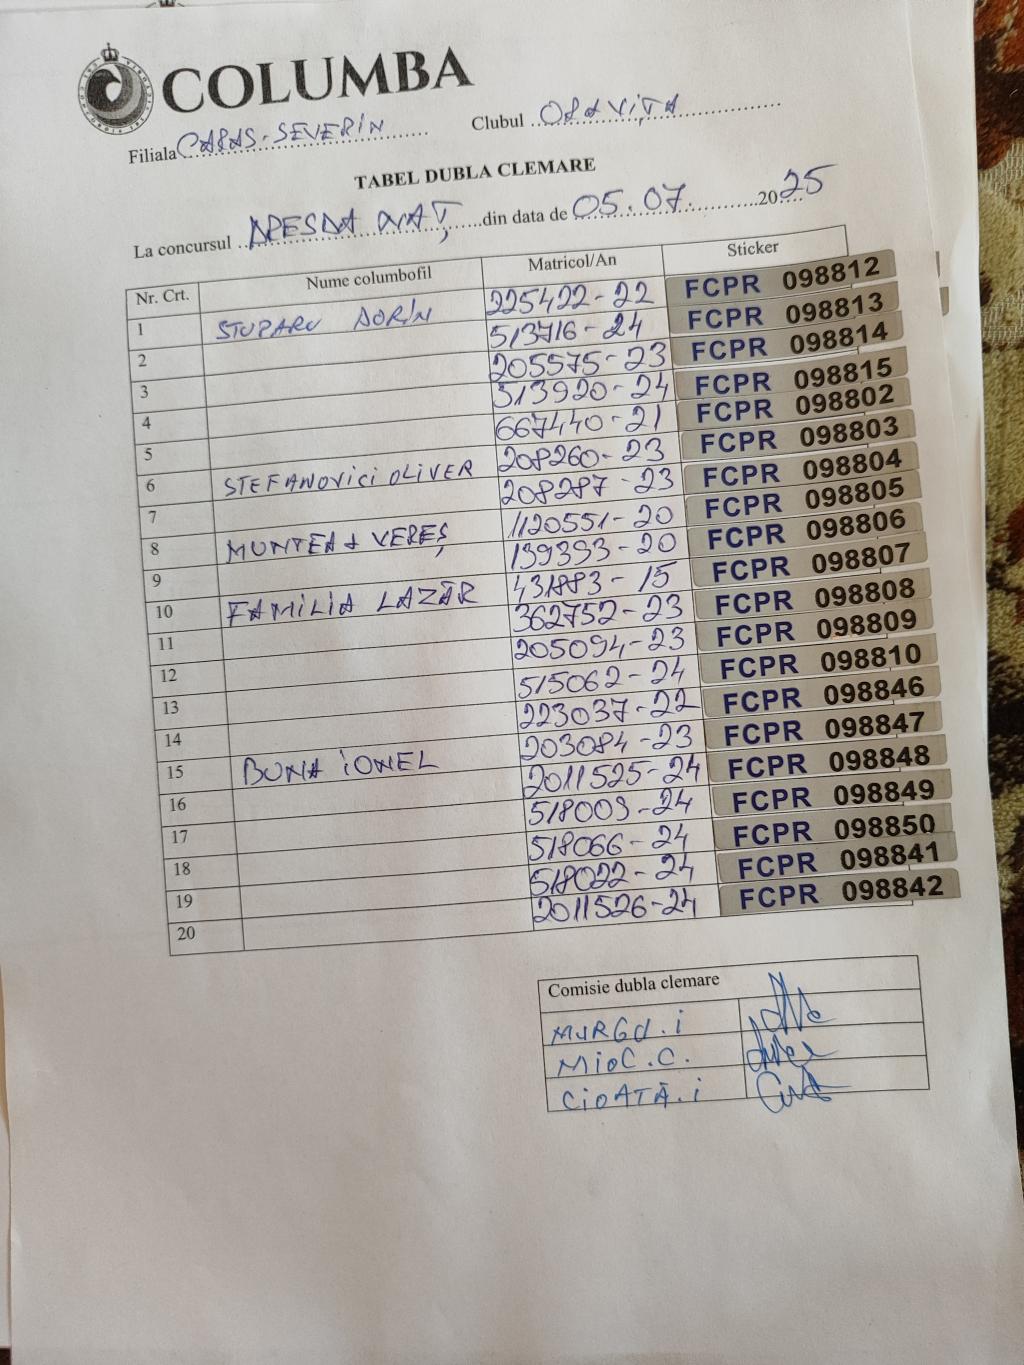 COLUMBA
Filiala CARAS-SEVERIN Clubul ORAVIȚA
TABEL DUBLA CLEMARE
La concursul din data de 05.07. 2025
Nr. Crt. Nume columbofil Matricol/An Sticker
1 STUPARU DORIN 225422-22 FCPR 098812
2 513716-24 FCPR 098813
3 205575-23 FCPR 098814
4 513920-24 FCPR 098815
5 667440-21 FCPR 098802
6 STEFANOVICI OLIVER 208260-23 FCPR 098803
7 208287-23 FCPR 098804
8 MUNTEA + VEREȘ 1120551-20 FCPR 098805
9 139393-20 FCPR 098806
10 FAMILIA LAZĂR 431883-15 FCPR 098807
11 362752-23 FCPR 098808
12 205094-23 FCPR 098809
13 515062-24 FCPR 098810
14 223037-22 FCPR 098846
15 BUNA IONEL 203084-23 FCPR 098847
16 2011525-24 FCPR 098848
17 518003-24 FCPR 098849
18 518066-24 FCPR 098850
19 518022-24 FCPR 098841
20 2011526-24 FCPR 098842
Comisie dubla clemare
MURGU.i
MIOC.C.
CIOATĂ.i